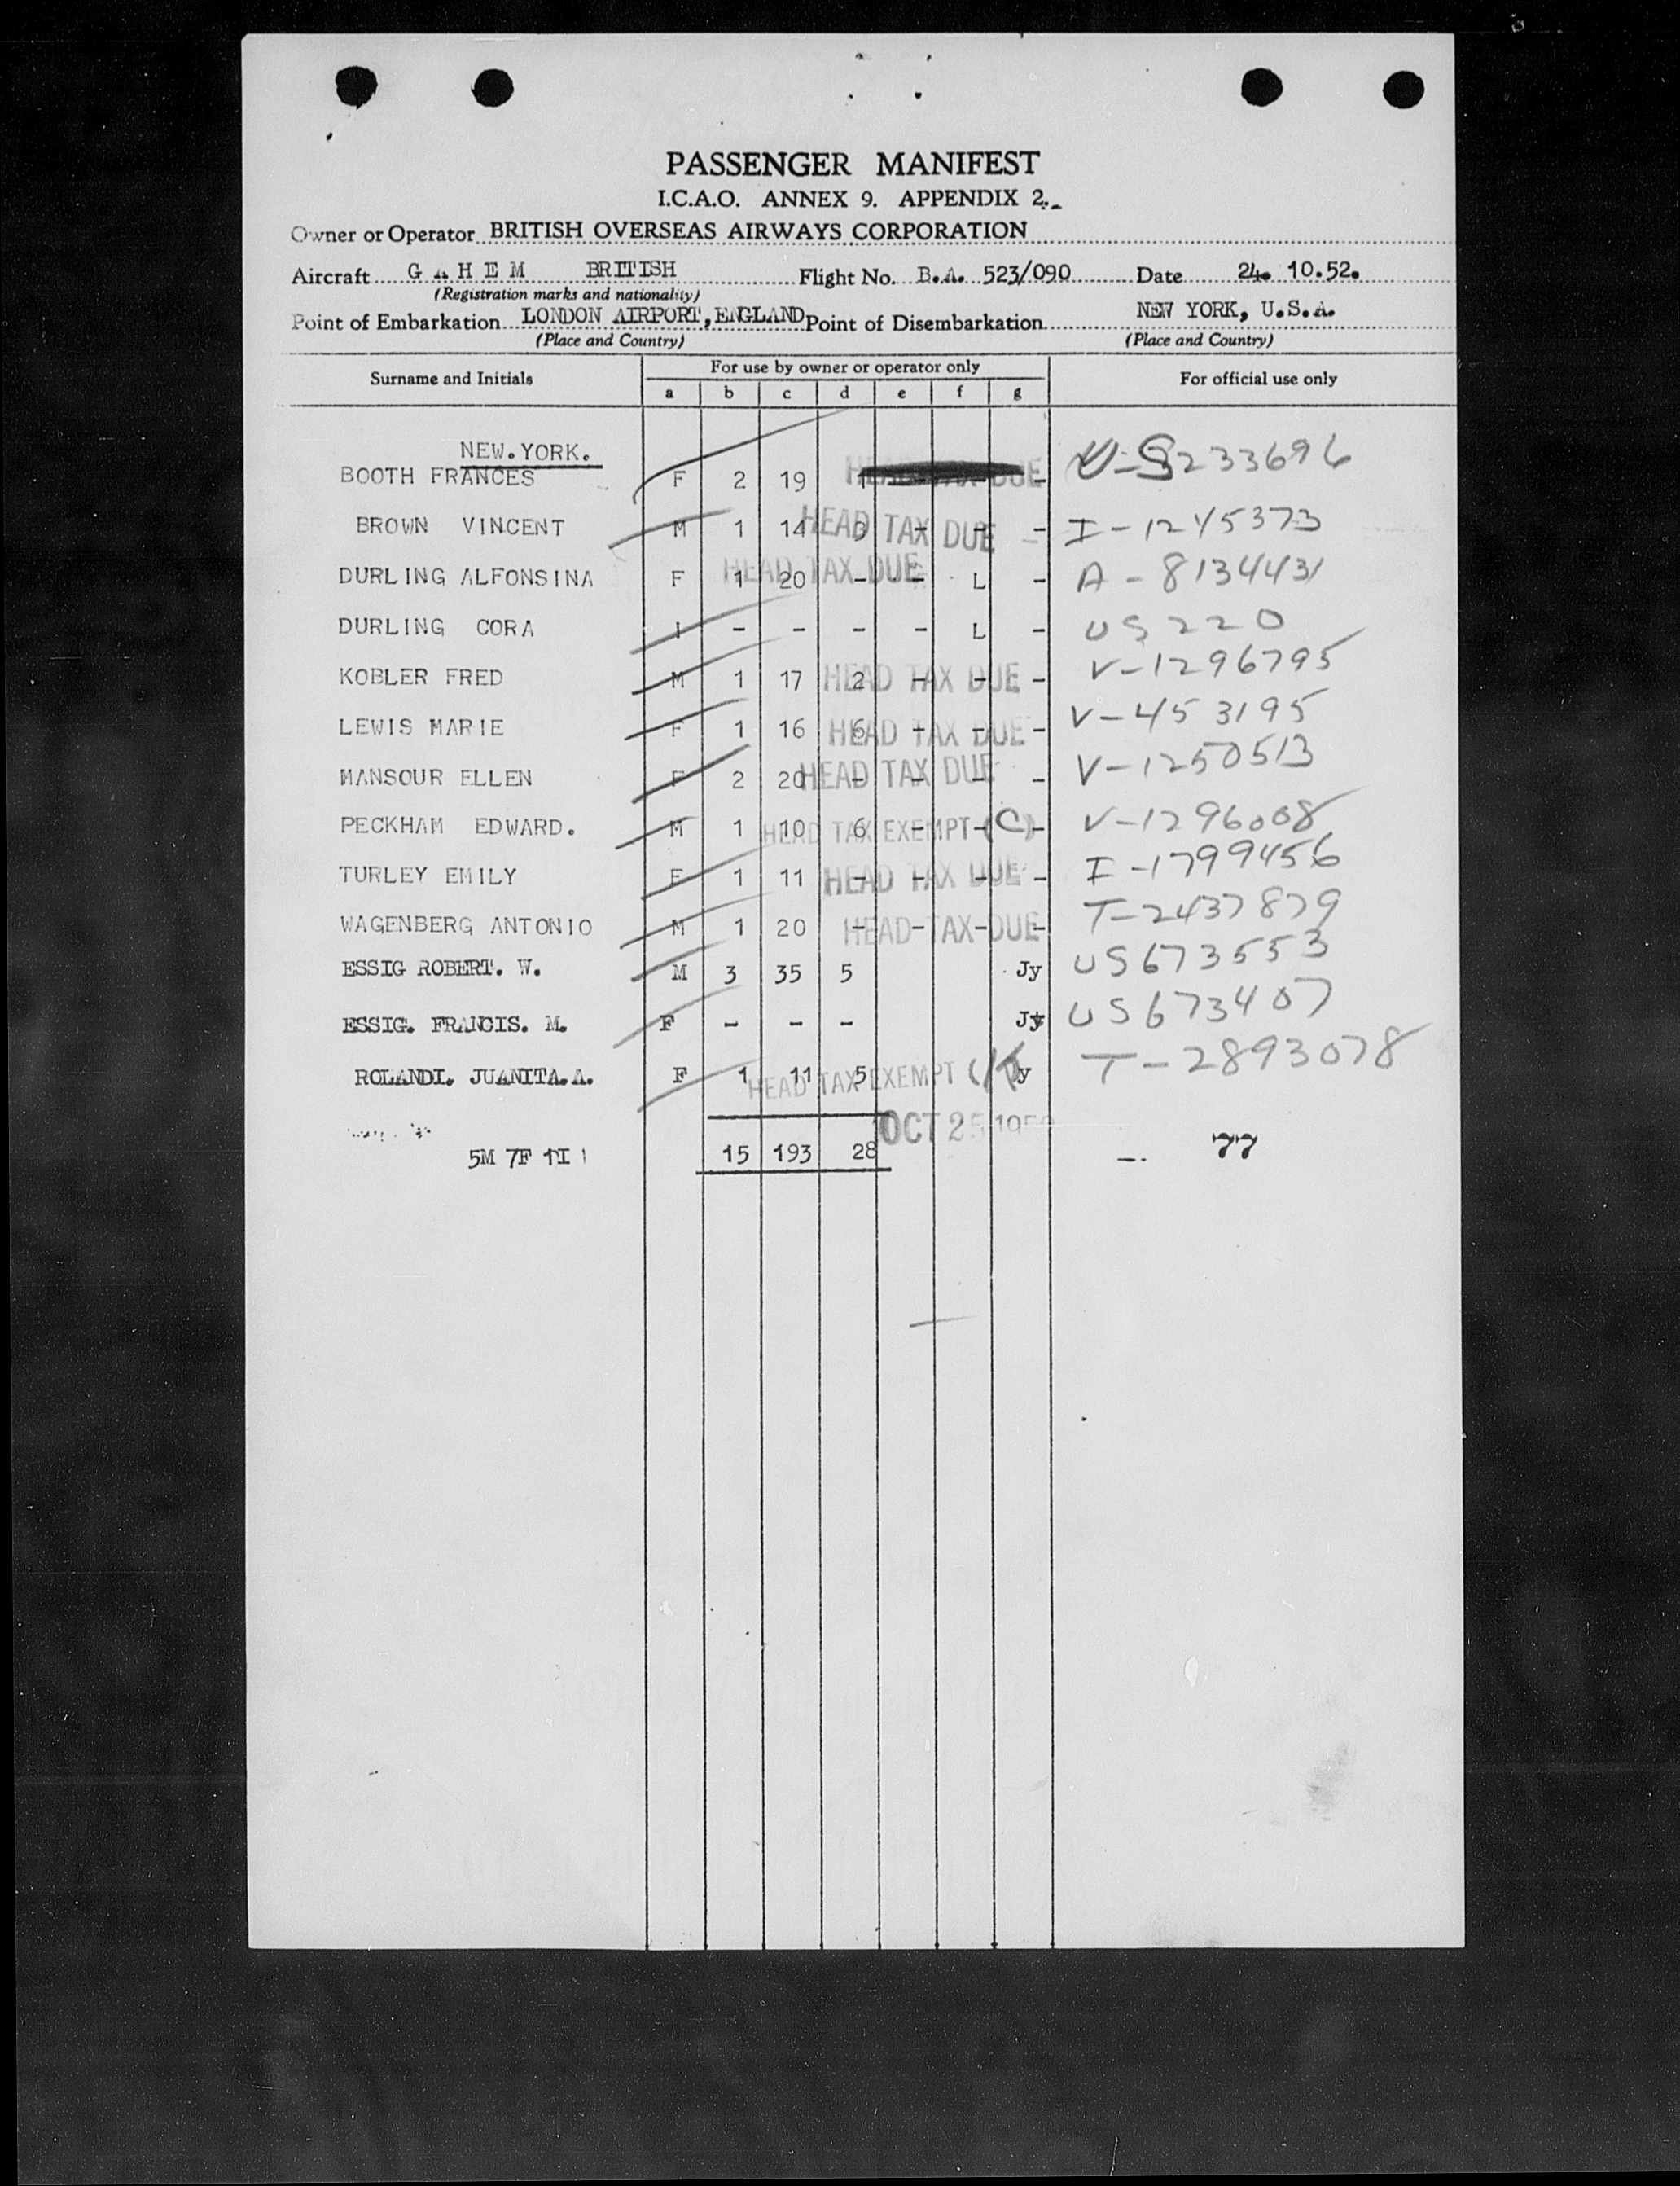 PASSENGER MANIFEST
I.C.A.O. ANNEX 9. APPENDIX 2.
Owner or Operator BRITISH OVERSEAS AIRWAYS CORPORATION
Aircraft G A H E M BRITISH Flight No. B.A. 523/090 Date 24. 10.52.
(Registration marks and nationality)
Point of Embarkation LONDON AIRPORT, ENGLAND Point of Disembarkation NEW YORK, U.S.A.
(Place and Country) (Place and Country)
Surname and Initials For use by owner or operator only For official use only
a b c d e f g
NEW.YORK.
BOOTH FRANCES F 2 19 1 - U-S233696
BROWN VINCENT M 1 14 3 HEAD TAX DUE - - - I-1245373
DURLING ALFONSINA F 1 20 - HEAD TAX DUE - L - A-8134431
DURLING CORA I - - - - L - US220
KOBLER FRED M 1 17 2 HEAD TAX DUE - - - V-1296795
LEWIS MARIE F 1 16 6 HEAD TAX DUE - - - V-453195
MANSOUR ELLEN F 2 20 - HEAD TAX DUE - - - V-1250513
PECKHAM EDWARD. M 1 10 6 HEAD TAX EXEMPT (C) - - - V-1296008
TURLEY EMILY F 1 11 - HEAD TAX DUE - - - I-1799456
WAGENBERG ANTONIO M 1 20 - HEAD TAX DUE - - - T-2437879
ESSIG ROBERT. W. M 3 35 5 Jy US673553
ESSIG. FRANCIS. M. F - - - Jy US673407
ROLANDI. JUANITA.A. F 1 11 5 HEAD TAX EXEMPT T-2893078
OCT 25
5M 7F 1I 15 193 28 77